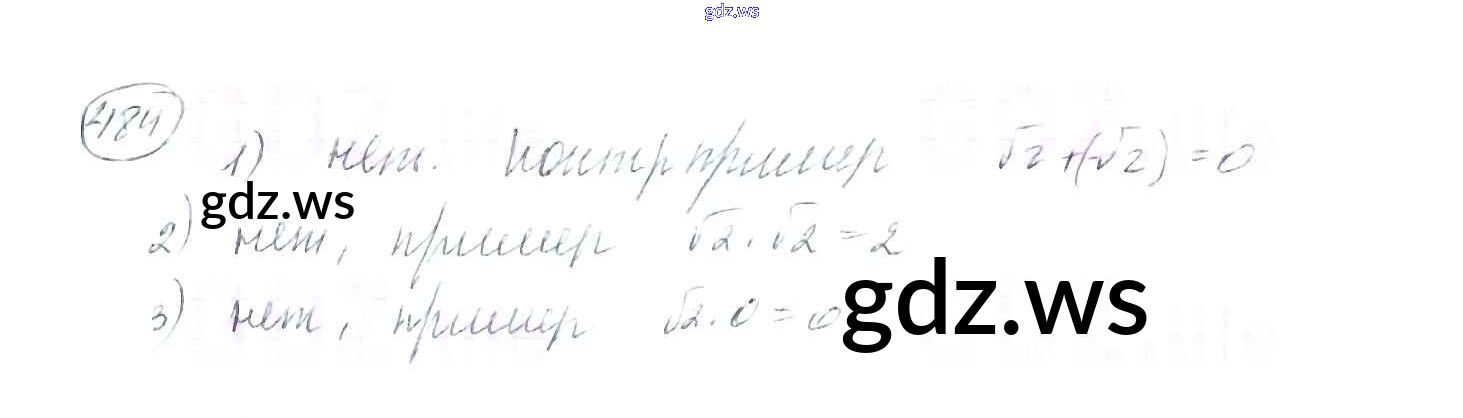 gdz.ws
484
1) нет. Контрпример √2+(-√2)=0
gdz.ws
2) нет, пример √2·√2=2
3) нет, пример √2·0=0
gdz.ws